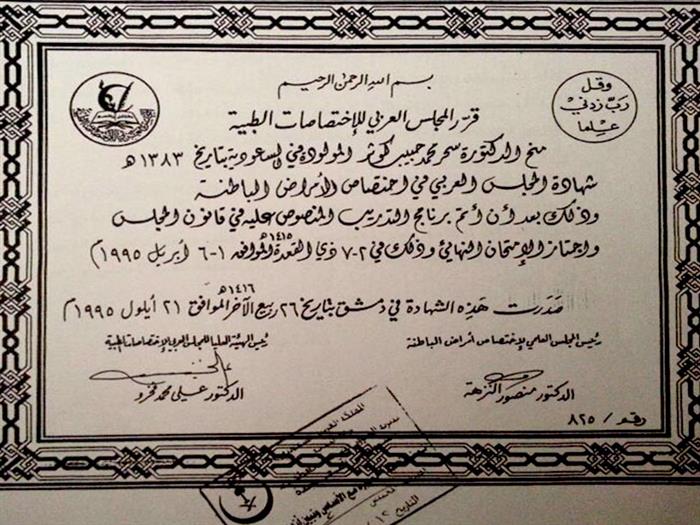 بسم الله الرحمن الرحيم
وقل
رب زدني
علما
قرر المجلس العربي للإختصاصات الطبية
منح الدكتورة سحر محمد حبيب كوثر المولودة في السعودية بتاريخ ١٣٨٣ هـ
شهادة المجلس العربي في اختصاص الأمراض الباطنة
وذلك بعد أن أتم برنامج التدريب المنصوص عليه في قانون المجلس
واجتاز الإمتحان النهائي وذلك في ٢-٧ ذي القعدة ١٤١٥هـ الموافق ١-٦ أبريل ١٩٩٥م
صدرت هذه الشهادة في دمشق بتاريخ ٢٦ ربيع الآخر ١٤١٦هـ الموافق ٢١ أيلول ١٩٩٥م
رئيس المجلس العلمي لإختصاص أمراض الباطنة
رئيس الهيئة العليا للمجلس العربي للإختصاصات الطبية
الدكتور منصور النزهة
الدكتور علي محمد فخرو
رقم / ٨٢٥